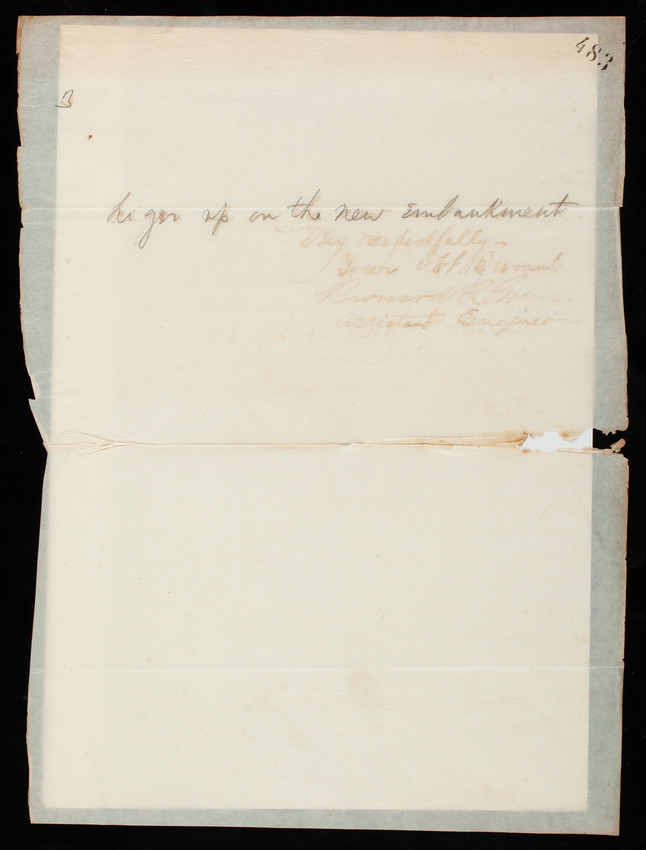 483
3
higer up on the new Embankment.
Very respectfully—
Your Obt. Servant
Bernard R. Green
Assistant Engineer